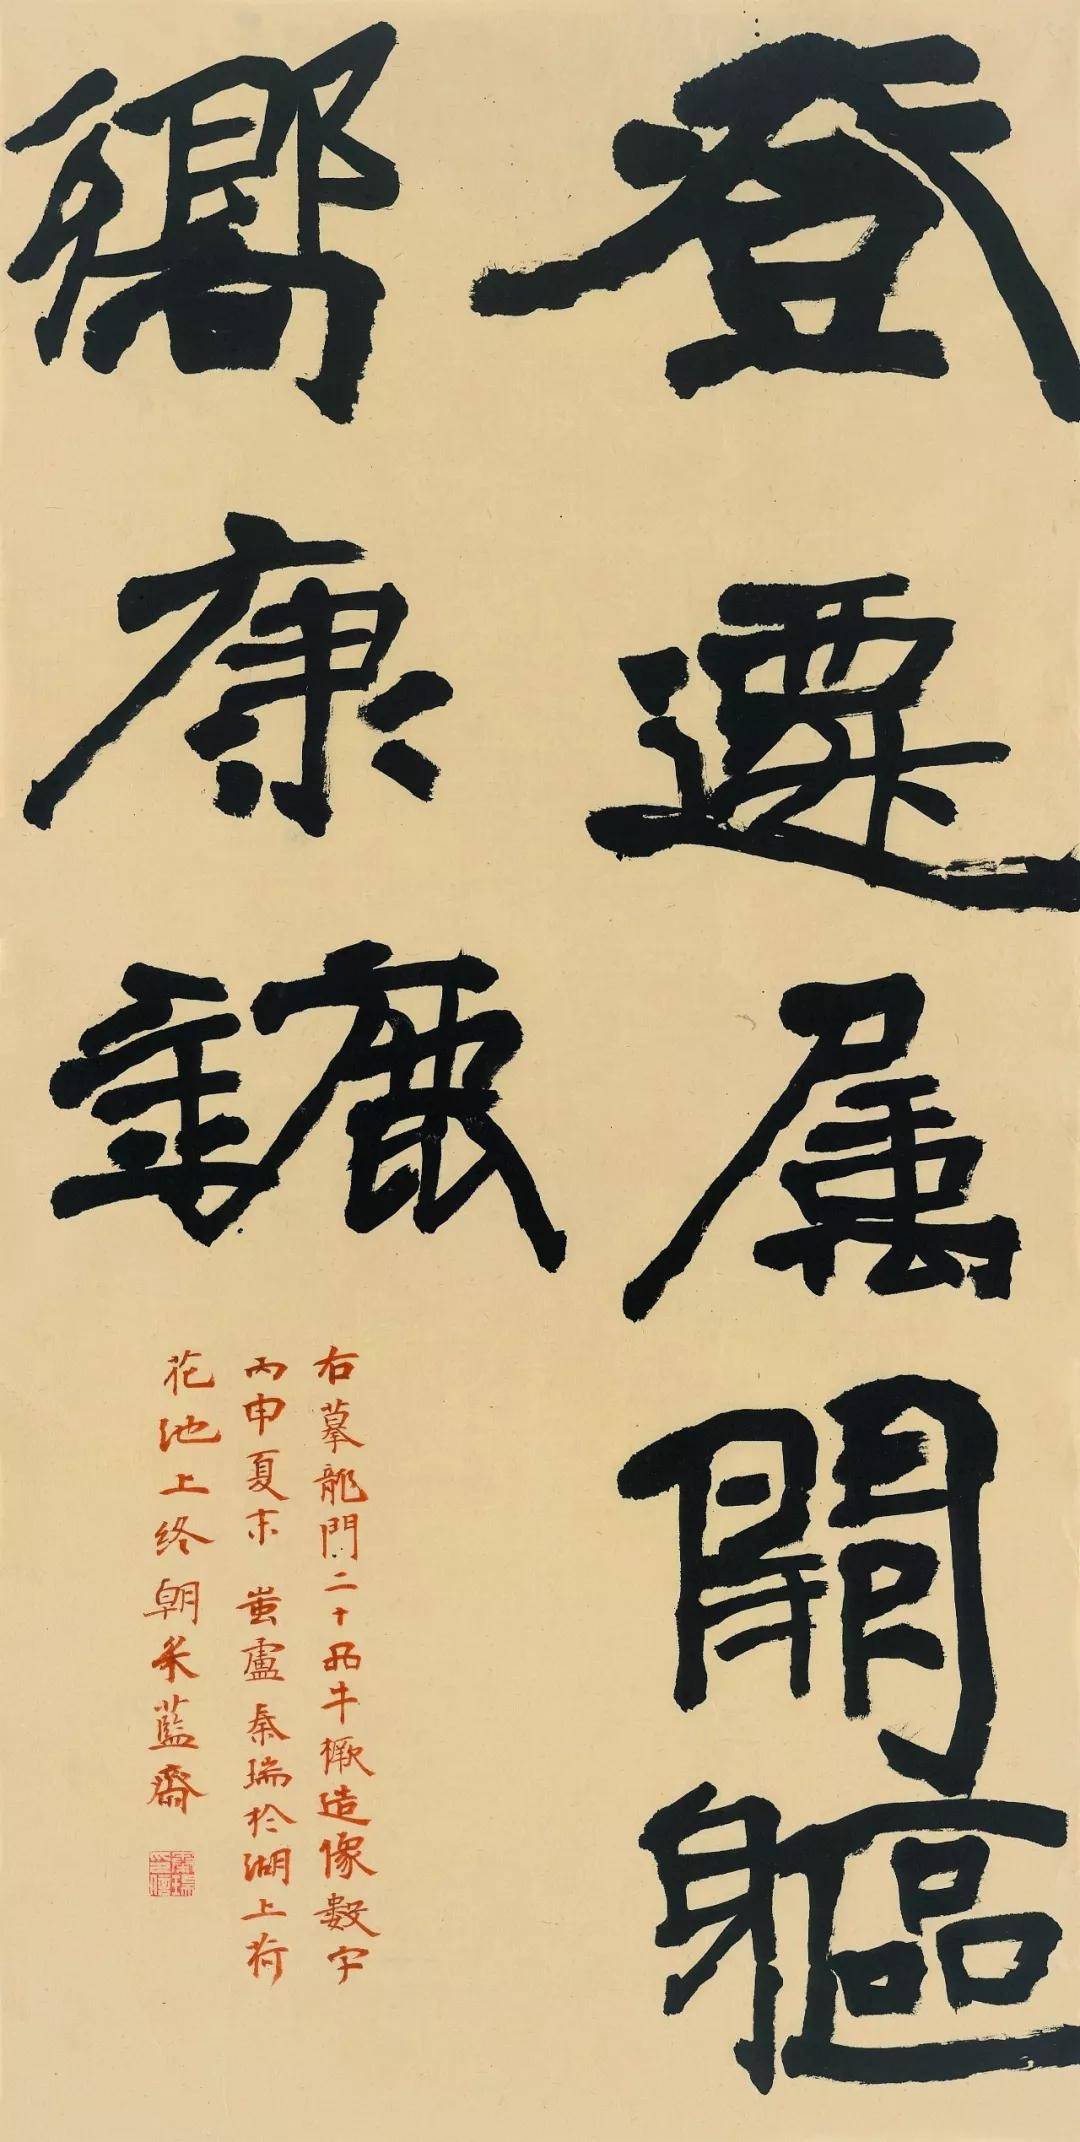 登遷属開軀
嚮康
右摹龍門二十品牛橛造像數字
丙申夏末 蚩盧秦瑞於湖上荷
花池上终朝采藍齋